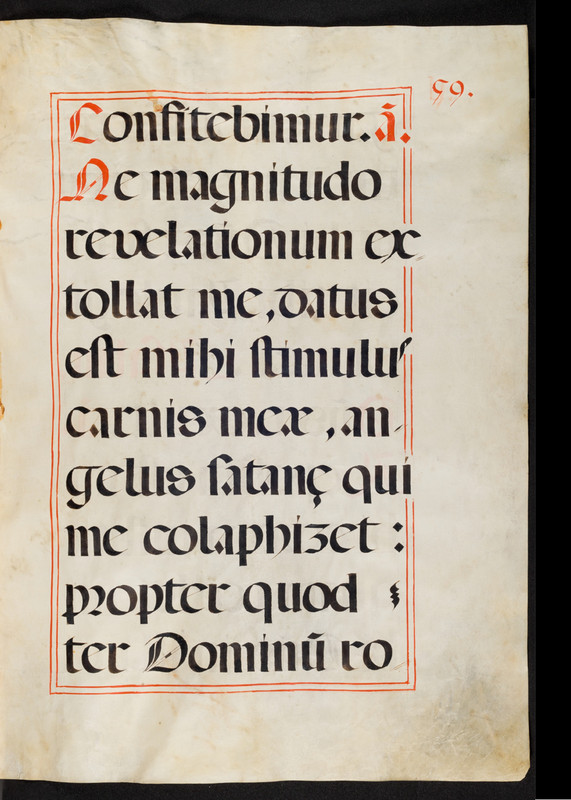 59.
Confitebimur. ā.
Ne magnitudo
revelationum ex
tollat me, datus
est mihi stimulus
carnis meæ, an-
gelus satanę qui
me colaphizet :
propter quod
ter Dominū ro